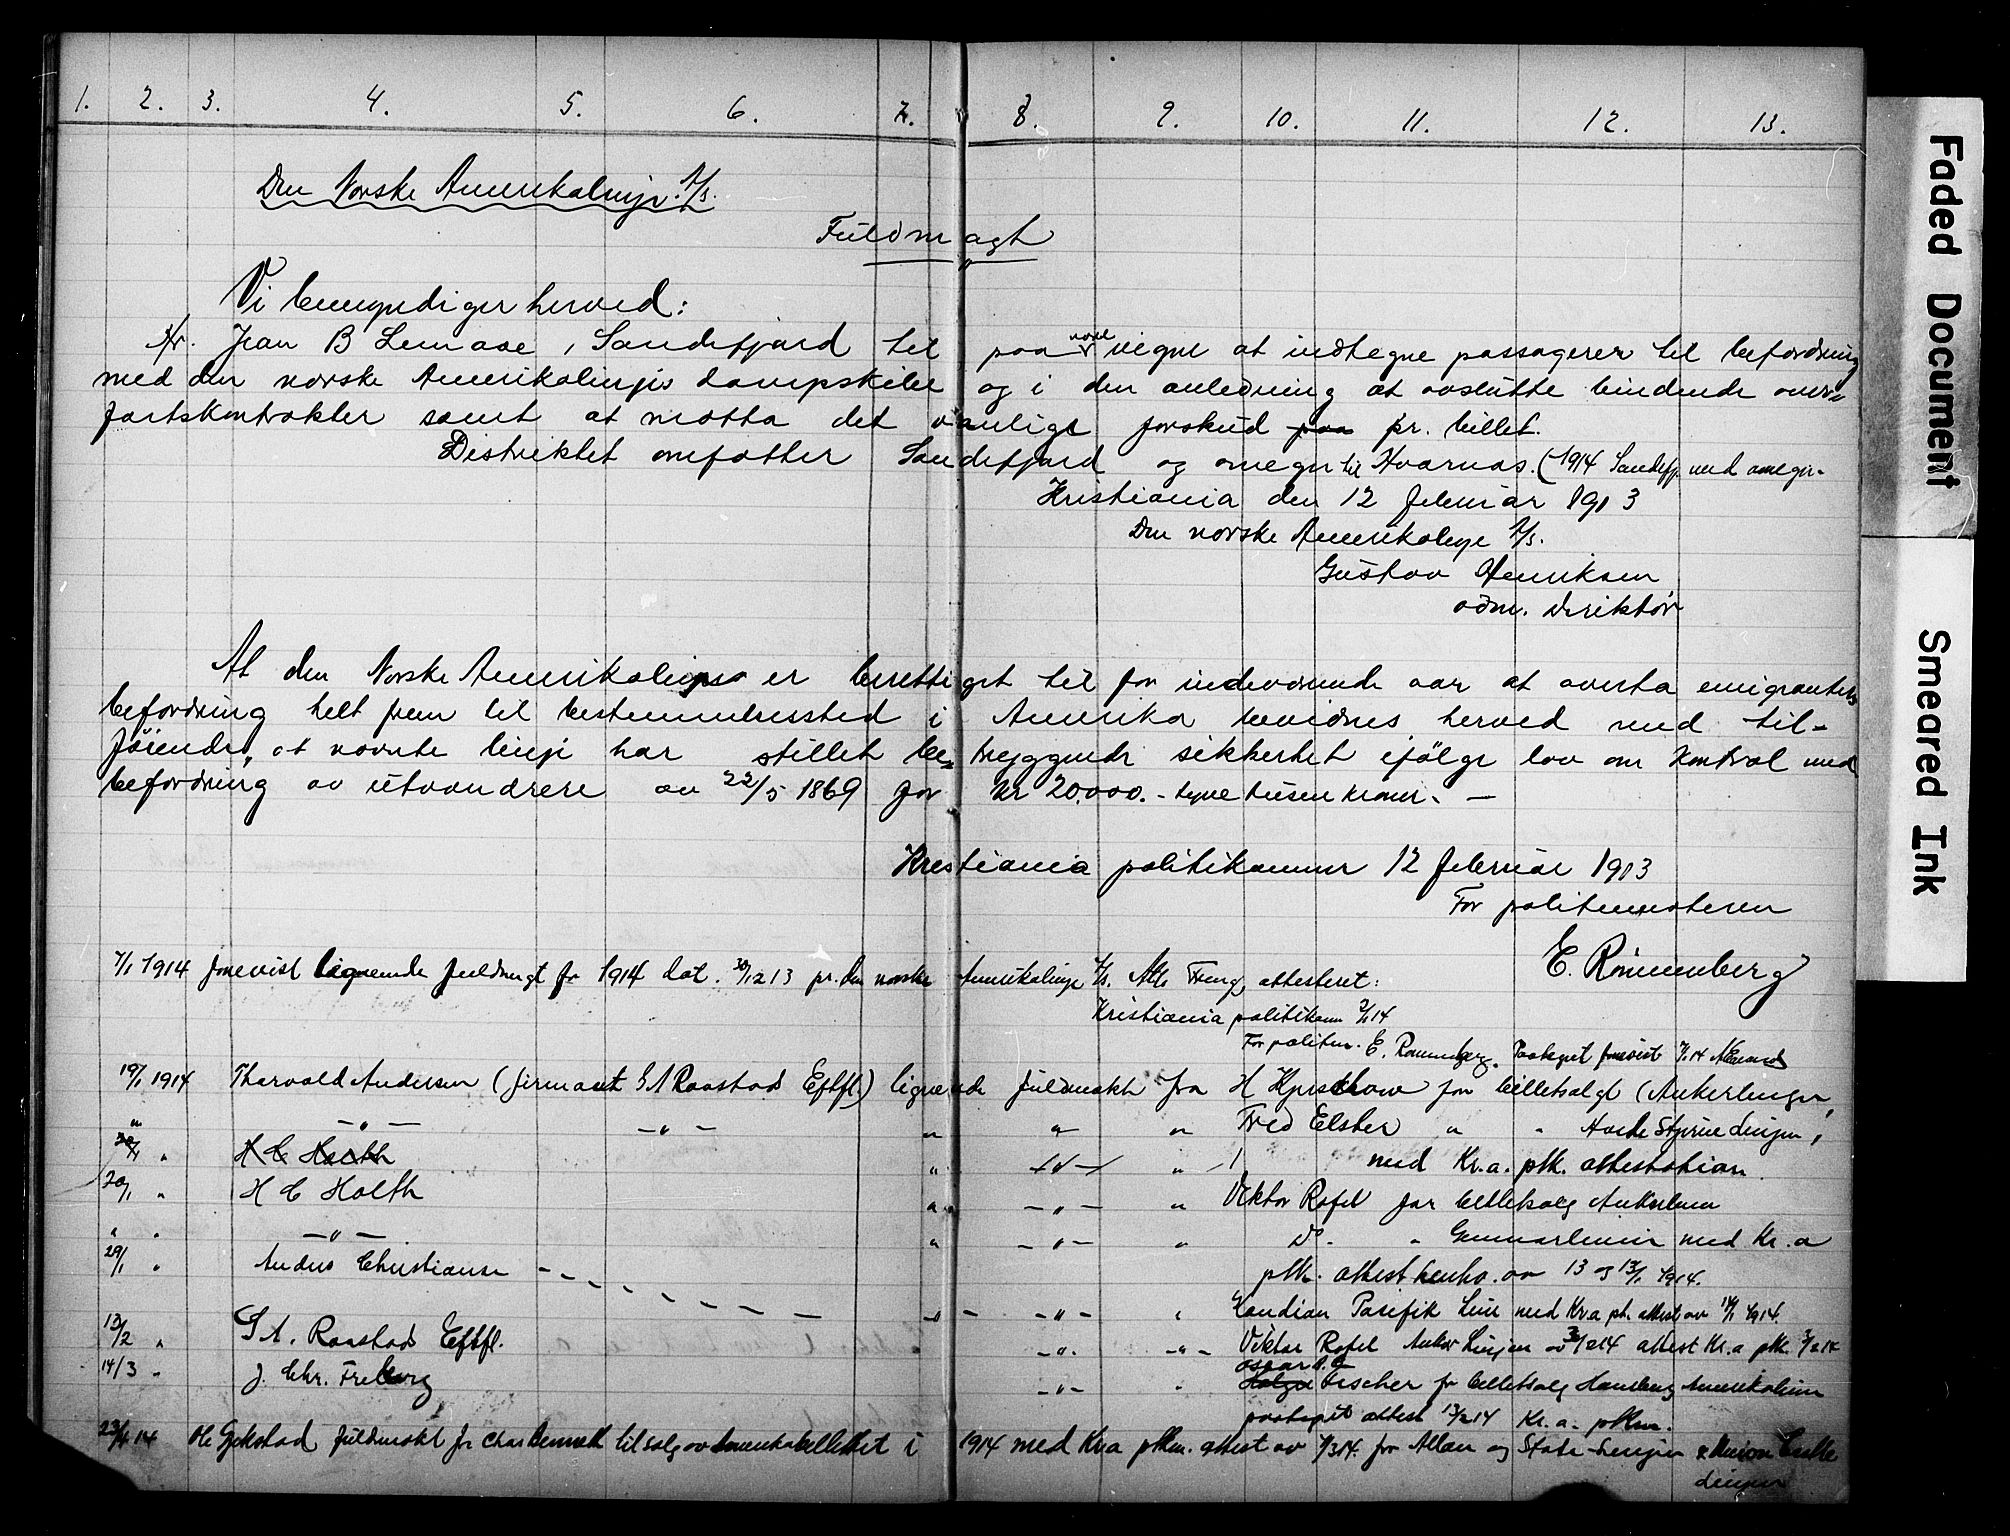 1. 2. 3. 4. 5. 6. 7. 8. 9. 10. 11. 12. 13.
Den Norske Amerikalinje A/S.
Fuldmagt
Vi bemyndiger herved:
Hr. Jean B Lemaae, Sandefjord til paa vore vegne at indtegne passagerer til befordring
med den norske Amerikalinjes dampskibe og i den anledning at avslutte bindende over=
fartskontrakter samt at motta det vanlige forskud paa pr. billet.
Distriktet omfatter Sandefjord og omegn til Hvarnæs. (1914 Sandefj. med omegn.
Kristiania den 12 februar 1913
Den norske Amerikalinje A/S.
Gustav Henriksen
adm. direktør
At den Norske Amerikalinje er berettiget til for indeværende aar at overta emigranters
befordring helt frem til bestemmelsessted i Amerika bevidnes herved med til-
føiende, at nævnte linje har stillet be= tryggende sikkerhet ifølge lov om kontrol med
befordring av utvandrere av 22/5 1869 for Kr 20.000.- tyve tusen kroner. —
Kristiania politikammer 12 februar 1913
For politimesteren
E. Rømmenberg
7/1 1914 forevist lignende fuldmagt for 1914 dat. 30/12 13 pr. den norske Amerikalinje A/S. attesteret:
Kristiania politikam 2/1 14
For politim. E. Rømmenberg. Paategnet forevist 7/1 14
19/1 1914 Thorvald Andersen (firmaet S A Raastad Eftfl) lignende fuldmakt fra H for billetsalgt (Ankerlinjen,
" — " — — " — " " " Fred Elster " " Hvide Stjerne linjen,
20/1 " H C Holth " — " — " med Kr.a. plk. attestation
20/1 " H C Holth " — " — " Viktor Rafel for billetsalg Ankerlinien
" " — " — " — " — " Do. " Cunnarlinien med Kr.a
29/1 " Anders Christiansen
plk. attest henho. av 13 og 13/1 1914.
— " — " Kandian Pasifik Line med Kr.a pk. attest av 14/1 1914.
13/2 " S A. Raastad Eftfl. — " — — " — Viktor Rafel Anker Linjen attest Kr.a plk. 3/2 14
Oscar
14/3 " J. Chr. Freberg — " — " Holger Fischer for billetsalg Hamburg Amerikalinien
paategnet attest 13/2 14 Kr.a. plkm.
23/4 14 Ole Gjekstad fuldmakt fr Chas Bennett til salg av Amerikabillettet i 1914 med Kr.a plkm. attest av 7/3 14. for Allan og State Linjen & Union Castle
linjen
Faded Document
Smeared Ink